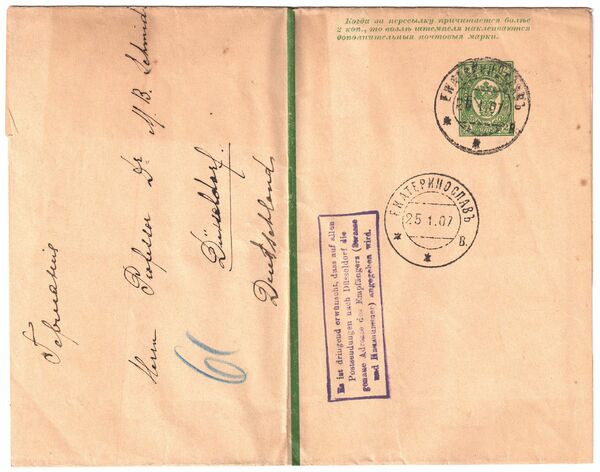 Когда за пересылку причитается болѣе
2 коп., то возлѣ штемпеля наклеиваются
дополнительныя почтовыя марки.
ЕКАТЕРИНОСЛАВЪ
ЕКАТЕРИНОСЛАВЪ
25.1.07
В.
Es ist dringend erwünscht, dass auf allen
Postsendungen nach Düsseldorf die
genaue Adresse des Empfängers (Strasse
und Hausnummer) angegeben wird.
Германія
Herrn Professor Dr M. B. Schmidt
Düsseldorf.
Deutschland
61